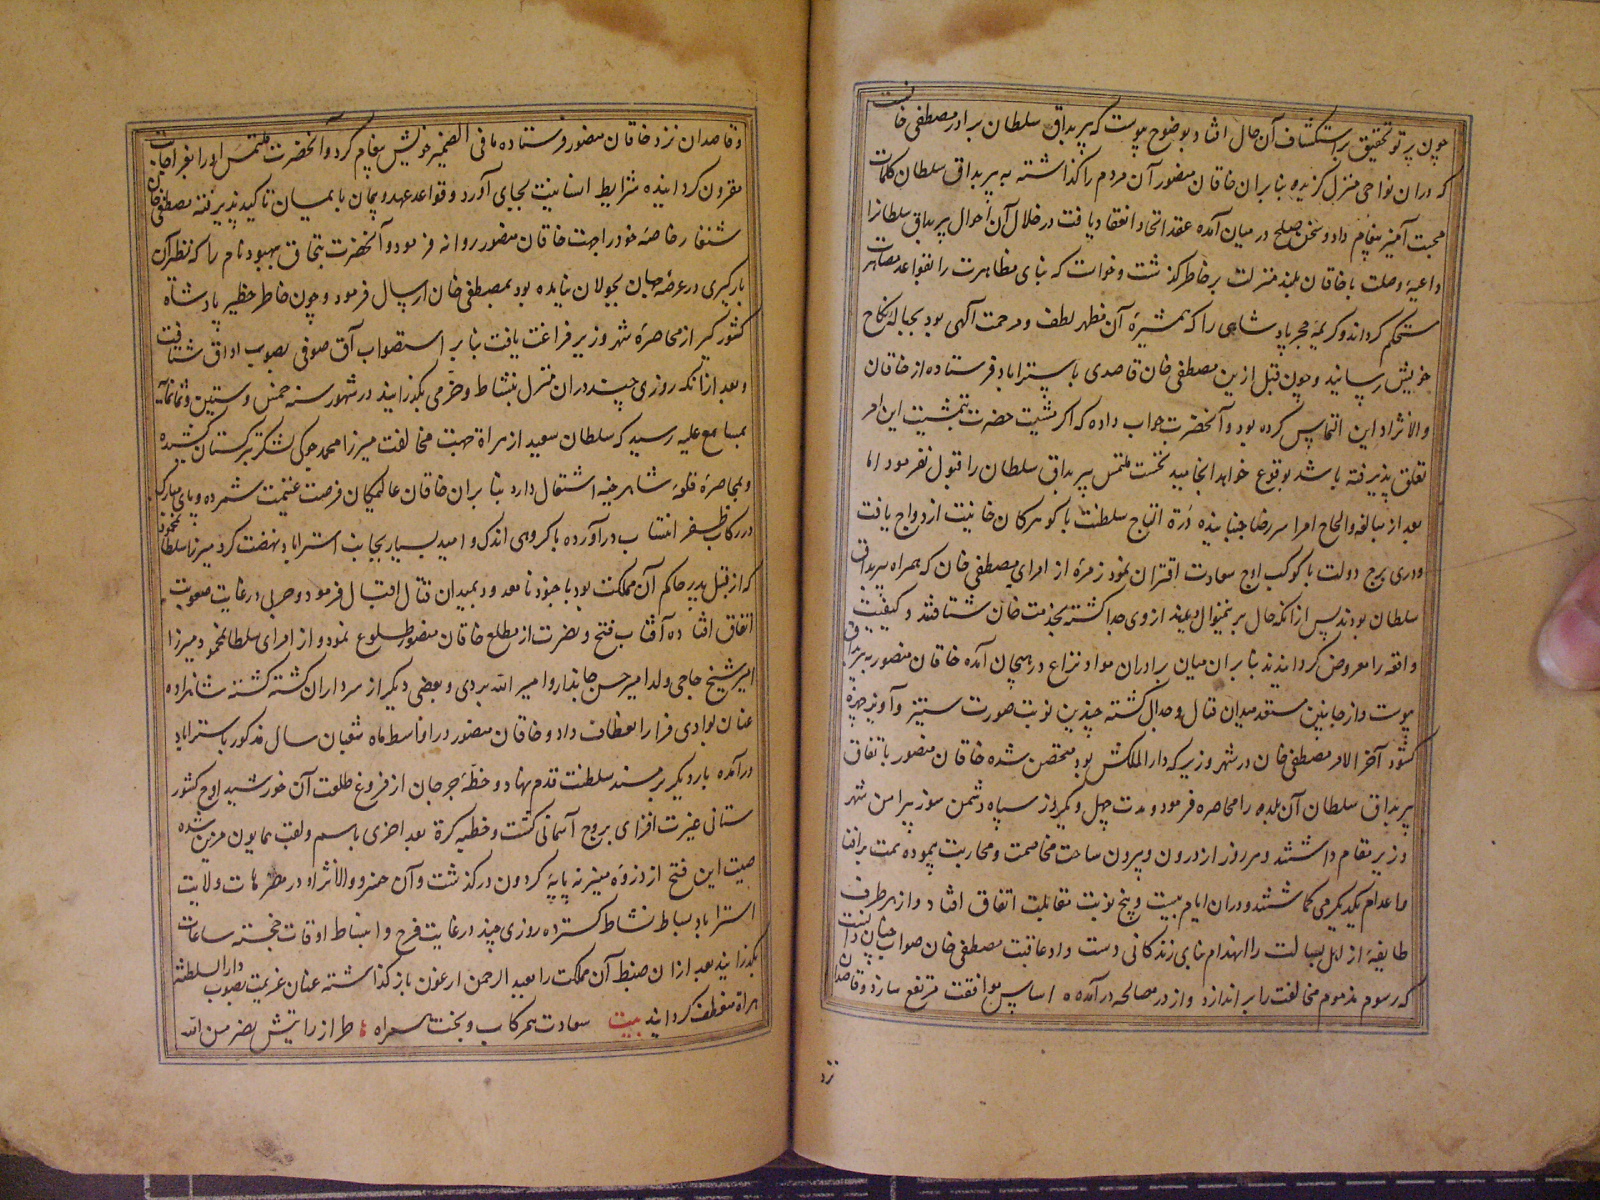 چون پرتو تحقیق بر استکشاف آن حال افتاد بوضوح پیوست که پیر بداق سلطان برادر مصطفی خانست
که در آن نواحی منزل گزیده بنابران خاقان منصور آن مردم را گذاشته به پیر بداق سلطان کلمات
محبت آمیز پیغام داد و سخن صلح در میان آمده عقد اتحاد انعقاد یافت در خلال آن احوال پیر بداق سلطانرا
داعیهٔ وصلت با خاقان بلند منزلت بر خاطر گذشت و خواست که بنای مظاهرت را بقواعد مصاهرت
مستحکم گرداند و کریمهٔ مجر پادشاهی را که همشیرهٔ آن مظهر لطف و مرحمت آلهی بود بحبالهٔ نکاح
خویش رساند و چون قبل ازین مصطفی خان قاصدی باستراباد فرستاده از خاقان
والانژاد این التماس کرده بود و آنحضرت جواب داده که اگر مشیت حضرت بتمشیت این امر
تعلق پذیرفته باشد بوقوع خواهد انجامید نخست ملتمس پیر بداق سلطان را قبول نفرمود اما
بعد از مبالغه و الحاح امرا سر رضا جنبانیده درهٔ التاج سلطنت با گوهر کان خانیت ازدواج یافت
و دری برج دولت با کوکب اوج سعادت اقتران نمود زمرهٔ از امرای مصطفی خان که همراه پیر بداق
سلطان بودند پس از آنکه حال برینمنوال دیدند از وی جدا گشته بخدمت خان شتافتند و کیفیت
واقعه را معروض گردانیدند بنابران میان برادران مواد نزاع در هیجان آمده خاقان منصور به پیر بداق
پیوست و از جانبین مستعد میدان قتال و جدال گشته چندین نوبت صورت ستیز و آویز چهره
گشود آخر الامر مصطفی خان در شهر وزیر که دار الملکش بود متحصن شده خاقان منصور باتفاق
پیر بداق سلطان آن بلده را محاصره فرمود و مدت چهل و یکروز سپاه دشمن سوز پیرامن شهر
وزیر مقام داشتند و هر روز از درون و بیرون ساحت مخاصمت و محاربت پیموده همت بر افنا
و اعدام یکدیگر می گماشتند و در آن ایام بیست و پنج نوبت مقابلت اتفاق افتاد و از هر طرف
طایفهٔ از اهل بسالت را انهدام بنای زندگانی دست داد عاقبت مصطفی خان صواب چنان دانست
که رسوم مذموم مخالفت را بر اندازد و از در مصالحه در آمده اساس موافقت مرتفع سازد و قاصدان
نزد
و قاصدان نزد خاقان منصور فرستاده ما فی الضمیر خویش پیغام کرد و آنحضرت ملتمس او را بعز اجابت
مقرون گردانیده شرایط انسانیت بجای آورد و قواعد عهد و پیمان بایمان تاکید پذیرفته مصطفی خان
شنقار خاصهٔ خود را جهت خاقان منصور روانه فرمود و آنحضرت بتچاق بهبود نام را که نظر آن
بارگیری در عرصهٔ جهان بجولان نیامده بود بمصطفی خان ارسال فرمود و چون خاطر خطیر پادشاه
کشورگیر از محاصرهٔ شهر وزیر فراغت یافت بنابر استصواب آق صوفی بصوب اداق شتافت
و بعد از آنکه روزی چند در آن منزل بنشاط و خرمی بگذرانید در شهور سنه خمس و ستین و ثمانمائه
بمسامع علیه رسید که سلطان سعید از هراة جهت مخالفت میرزا محمد جوکی لشکر بترکستان کشیده
و بمحاصرهٔ قلعهٔ شاهرخیه اشتغال دارد بنابران خاقان عالیمکان فرصت غنیمت شمرده و پای مبارک
در رکاب ظفر انتساب در آورده با گروهی اندک و امید بسیار بجانب استراباد نهضت کرد میرزا سلطان محمود
که از قبل پدر حاکم آن مملکت بود با جنود نامعدود بمیدان قتال اقبال فرمود و حربی در غایت صعوبت
اتفاق افتاده آفتاب فتح و نصرت از مطلع خاقان منصور طلوع نمود و از امرای سلطانمحمود میرزا
امیر شیخ حاجی ولد امیر حسن جاندار و امیر الله بردی و بعضی دیگر از سرداران کشته گشته شاهزاده
عنان بوادی فرار انعطاف داد و خاقان منصور در اواسط ماه شعبان سال مذکور باستراباد
در آمده بار دیگر بر مسند سلطنت قدم نهاد و خطهٔ جرجان از فروغ طلعت آن خورشید اوج کشور
ستانی غیرت افزای بروج آسمانی گشت و خطبه کرة بعد اخری باسم و لقب همایون مزین شده
صیت این فتح از ذروهٔ منبر نه پایهٔ گردون در گذشت و آن خسرو والانژاد در منزهات ولایت
استراباد بساط نشاط گسترده روزی چند در غایت فرح و انبساط اوقات خجسته ساعات
بگذرانید بعد از آن ضبط آن مملکت را بعبد الرحمن ارغون باز گذاشته عنان عزیمت بصوب دار السلطنهٔ
هراة منعطف گردانید بیت سعادت همرکاب و بخت همراه طراز رایتش نصر من الله